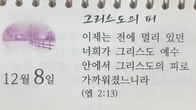 그리스도의 피
이제는 전에 멀리 있던
너희가 그리스도 예수
안에서 그리스도의 피로
가까워졌느니라
(엡 2:13)
12월 8일